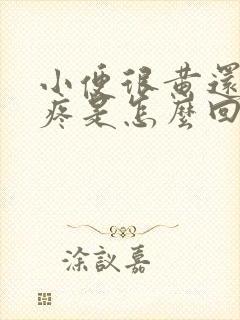 小便很黄還
疼是怎麼回
涂議嘉